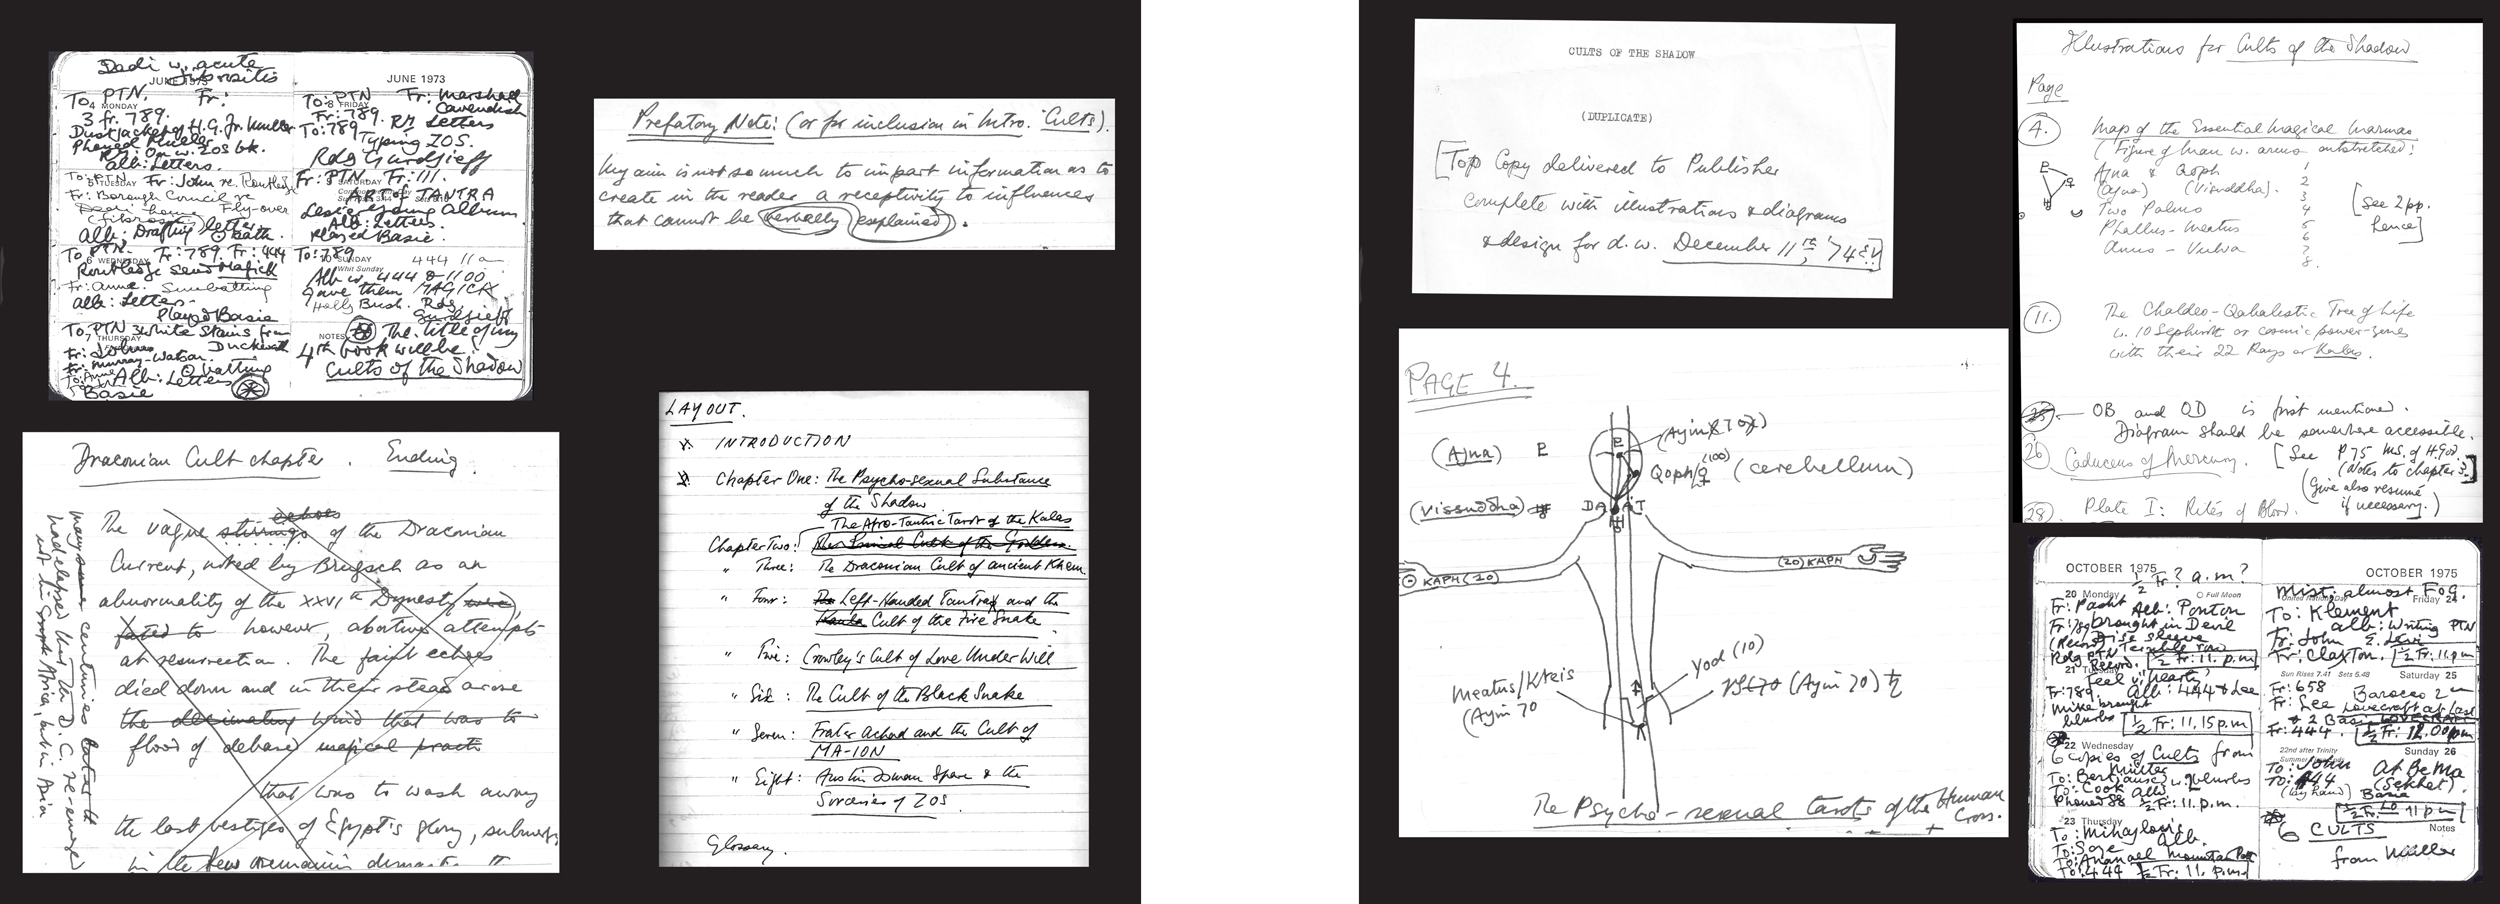 Dadi w. acute
fibrositis
JUNE 1973
To: PTN. Fr:
4 MONDAY
3 fr. 789.
Dustjacket of H.G. fr. Muller
Phoned Muller
Rdg: On w. ZOS bk.
Alb: Letters.
To: PTN Fr: John re. Routledge
5 TUESDAY
Fr: Borough Council re
Fly-over
(fibrositis)
Alb: Drafting letter
To PTN. Fr: 789. Fr: 444
6 WEDNESDAY
Routledge send Magick
Fr: Anne. Sunbathing
Alb: Letters.
Played Basie
To: PTN 3 White Stains from
7 THURSDAY
Duckworth
Fr: Murray-Watson.
To: Anne Alb: Letters
Basie
JUNE 1973
To: PTN Fr: Marshall
8 FRIDAY
Cavendish
Fr: 789. RM Letters
To: 789 Typing ZOS.
Rdg Gurdjieff
Fr: PTN Fr: 111.
9 SATURDAY
ART of TANTRA
Lester Young Album
Alb: Letters.
Played Basie.
To: 789
10 SUNDAY
444 11 am
Whit Sunday
Alb w. 444 & 1100
gave them MAGICK
Holly Bush. Rdg
Gurdjieff
NOTES
The title of my
4th book will be:
Cults of the Shadow
Prefatory Note: (or for inclusion in Intro. 'Cults').
My aim is not so much to impart information as to
create in the reader a receptivity to influences
that cannot be verbally explained.
Draconian Cult chapter. Ending.
echoes
The vague stirrings of the Draconian
Current, noted by Brugsch as an
abnormality of the XXVIth Dynasty (were),
fated to however, abortive attempts
at resurrection. The faint echoes
died down and in their stead arose
the decimating wind that was to
flood of debased magical practi
that was to wash away
the last vestiges of Egypt's glory, submerg
in the few remaining
many some centuries later to
had elapsed when the D. C. re-emerge
not in Africa, but in Asia.
LAYOUT.
INTRODUCTION
Chapter One: The Psycho-sexual Substance
of the Shadow
The Afro-Tantric Tarot of the Kalas
Chapter Two: The Primal Cult of the Goddess
" Three: The Draconian Cult of ancient Khem
" Four: The Left-Handed Tantra and the
Kaula Cult of the Fire Snake
" Five: Crowley's Cult of Love Under Will
" Six: The Cult of the Black Snake
" Seven: Frater Achad and the Cult of
MA-ION
" Eight: Austin Osman Spare & the
Sorceries of ZOS.
Glossary.
CULTS OF THE SHADOW
(DUPLICATE)
[Top Copy delivered to Publisher
complete with illustrations & diagrams
& design for d.w. December 11th, '74 e.v]
PAGE 4.
(Ajna)
(Ayin 70)
Qoph (100) (cerebellum)
(Vissuddha)
DA AT
KAPH (20)
(20) KAPH
Meatus/Kteis
(Ayin 70
Yod (10)
(Ayin 70)
The Psycho-sexual tarots of the Human
Cross.
Illustrations for Cults of the Shadow
Page
4. Map of the Essential Magical Marmas
(Figure of Man w. arms outstretched!
Ajna & Qoph 1
(Ajna) (Visuddha). 2
3
Two Palms 4
Phallus-Meatus 5
6
Anus - Vulva 7
8.
[See 2pp.
hence]
11. The Chaldeo-Qabalistic Tree of Life
w. 10 Sephiroth or cosmic power-zones
with their 22 Rays or Kalas.
25 OB and OD is first mentioned.
Diagram should be somewhere accessible.
26 Caduceus of Mercury. [See P75 MS. of H.God.
(Notes to chapter 3.]
(Give also resumé
if necessary.)
28. Plate I: Rites of Blood.
OCTOBER 1975
½ Fr? a.m?
20 Monday Full Moon
Fr: Pasht Alb: Ponton
Fr: 789 brought in Devil
(Record) Dise sleeve
Rdg PTN Terrible row
Record. ½ Fr: 11. p.m
21 Tuesday
Feel "hearty"
Fr: 789. Alb: 444 & Lee
Mike brought
blurbs
½ Fr: 11.15 p.m
22 Wednesday
6 copies of Cults from
Muller
To: Bert (Jause) w. blurbs
To: Cook Alb:
Phoned 88 ½ Fr: 11. p.m.
23 Thursday
To: Mihaylovic
Alb.
To: Soze
To: Ananael Mountain Pat
To: 444 ½ Fr: 11. p.m.
OCTOBER 1975
Mist: almost Fog.
United Nations Day
Friday 24
To: Klement
Alb: Writing PTN
Fr: John E. Levi
Fr: Claxton. ½ Fr: 11. p.m
Sun Rises 7.41 Sets 5.48
Saturday 25
Fr: 658 Barocco 2
Fr: Lee Lovecraft at Last
+ 2 Basie LOVECRAFT
Fr: 444. ½ Fr: 12.00 p.m
22nd after Trinity
Sunday 26
To: John At BeMa
To: 444 (Sekhet).
(by hand) Basie
½ Fr. 11 p.m
Notes
6 CULTS
from Muller